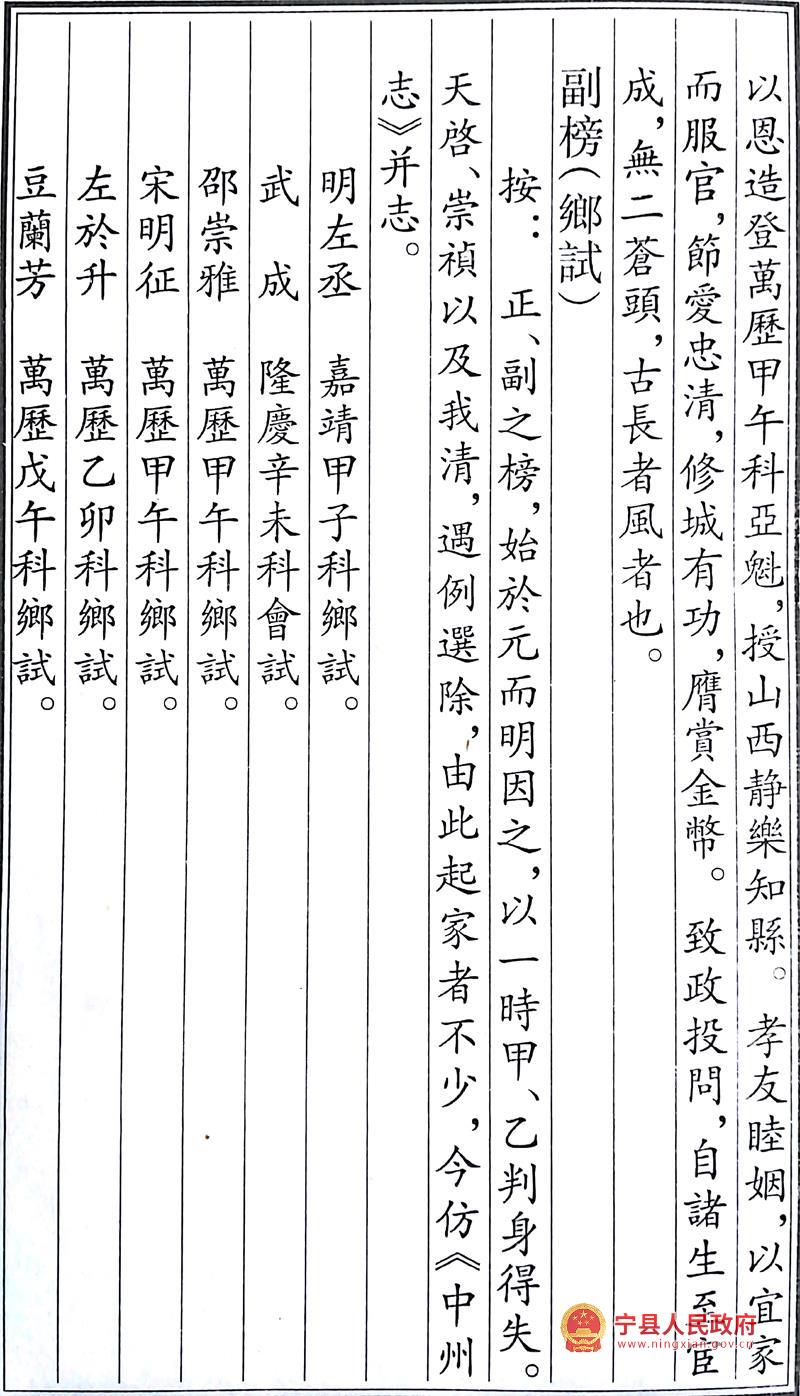 以恩造登萬歷甲午科亞魁，授山西静樂知縣。孝友睦姻，以宜家
而服官，節愛忠清，修城有功，膺賞金幣。致政投問，自諸生至宦
成，無二蒼頭，古長者風者也。
副榜（鄉試）
按：正、副之榜，始於元而明因之，以一時甲、乙判身得失。
天啓、崇禎以及我清，遇例選除，由此起家者不少，今仿《中州
志》并志。
明左丞 嘉靖甲子科鄉試。
武 成 隆慶辛未科會試。
邵崇雅 萬歷甲午科鄉試。
宋明征 萬歷甲午科鄉試。
左於升 萬歷乙卯科鄉試。
豆蘭芳 萬歷戊午科鄉試。
宁县人民政府
www.ningxian.gov.cn